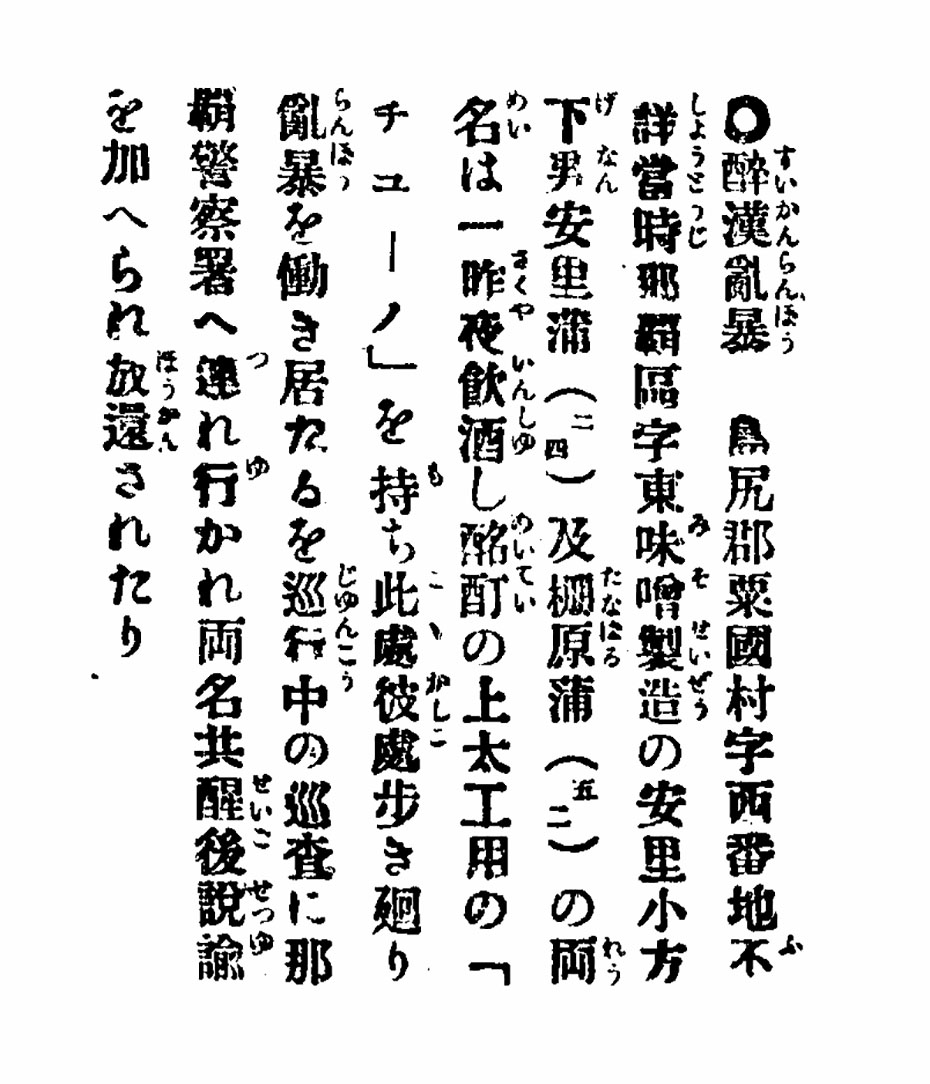 〇醉漢亂暴　島尻郡粟國村字西番地不
詳當時那覇區字東味噌製造の安里小方
下男安里蒲（二四）及棚原蒲（五二）の両
名は一昨夜飲酒し酩酊の上大工用の「
チューノ」を持ち此處彼處歩き廻り
亂暴を働き居たるを巡行中の巡査に那
覇警察署へ連れ行かれ両名共醒後説諭
を加へられ放還されたり